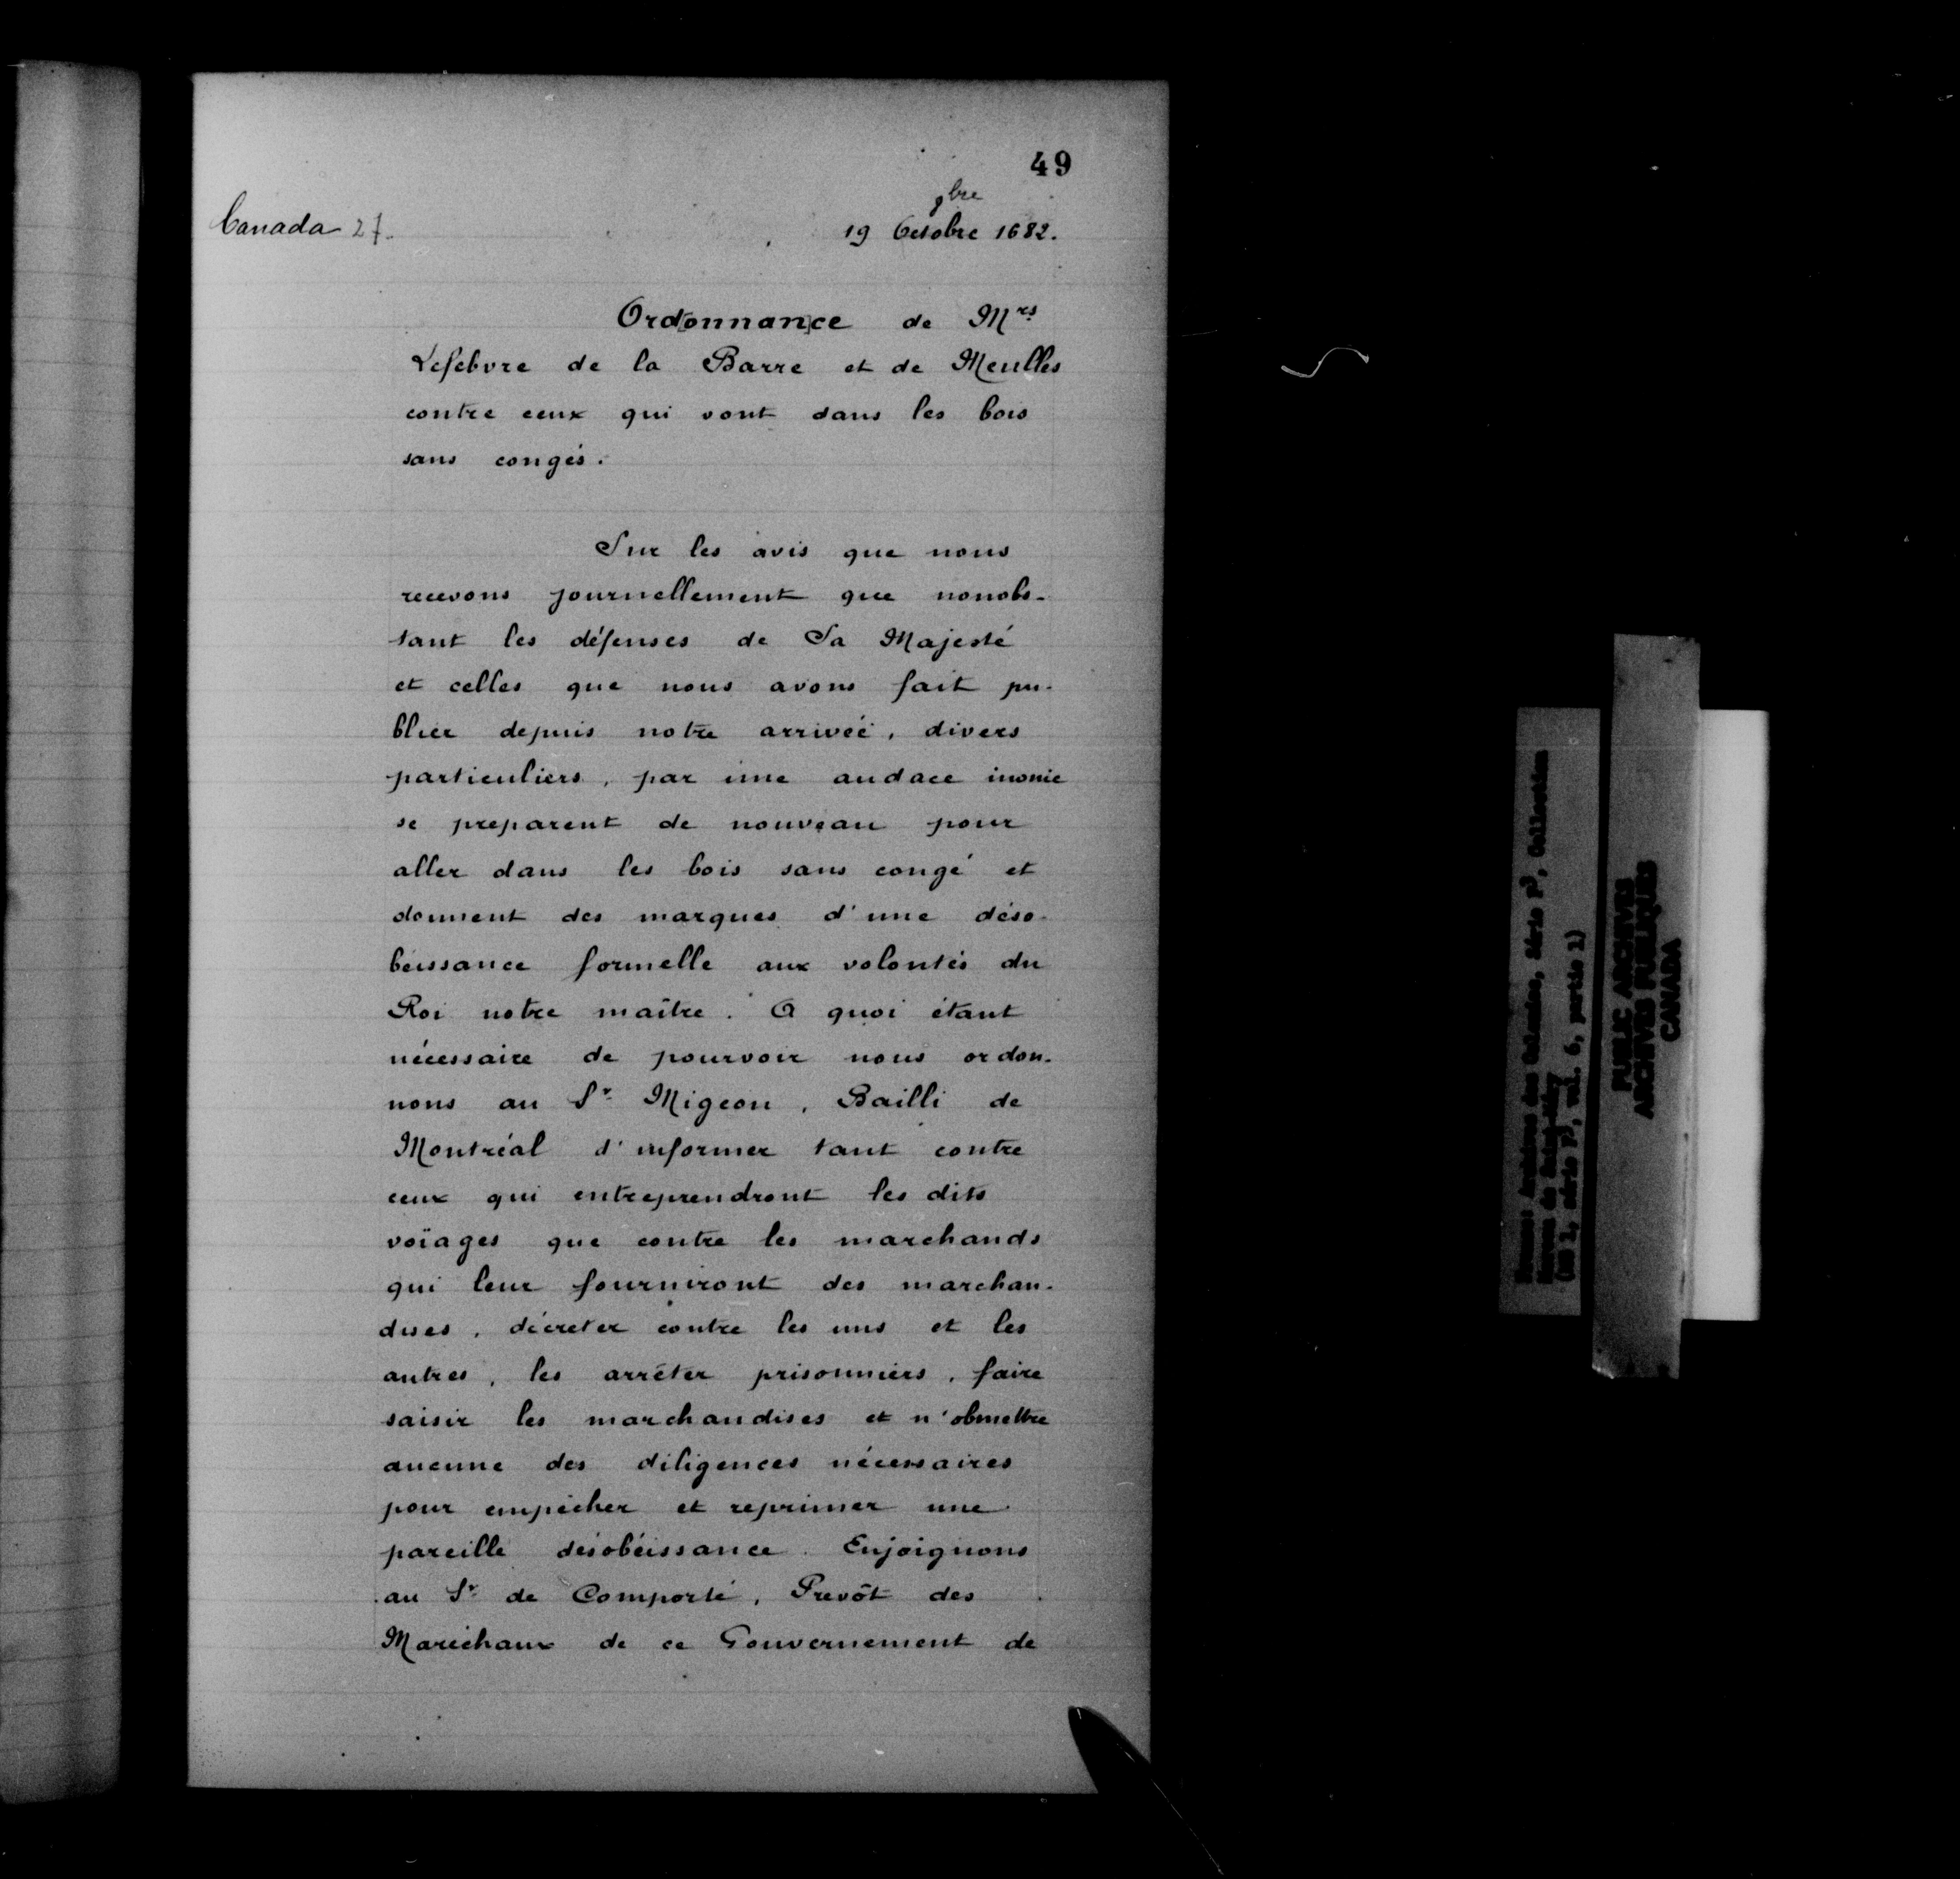 49
9bre
Canada 27.
19 Octobre 1682.
Ord[onnan]ce de Mrs
Lefebvre de la Barre et de Meulles
contre ceux qui vont dans les bois
sans congés.
Sur les avis que nous
recevons journellement que nonobs-
tant les défenses de Sa Majesté
et celles que nous avons fait pu-
blier depuis notre arrivéë, divers
particuliers, par une audace inouie
se preparent de nouveau pour
aller dans les bois sans congé et
donnent des marques d'une déso-
beissance formelle aux volontés du
Roi notre maître. A quoi étant
nécessaire de pourvoir nous ordon-
nons au Sr Migeon, Bailli de
Montréal d'informer tant contre
ceux qui entreprendront les dits
voïages que contre les marchands
qui leur fourniront des marchan-
dises, décreter contre les uns et les
autres, les arrêter prisonniers, faire
saisir les marchandises et n'obmettre
aucune des diligences nécessaires
pour empêcher et reprimer une
pareille désobéissance. Enjoignons
au Sr de Comporté, Prevôt des
Maréchaux de ce Gouvernement de
PUBLIC ARCHIVES
ARCHIVES PUBLIQUES
CANADA
Archives des Colonies, Série F3, Collection
Moreau de Saint-Méry
(MG 1, série F3, vol. 6, partie 1)